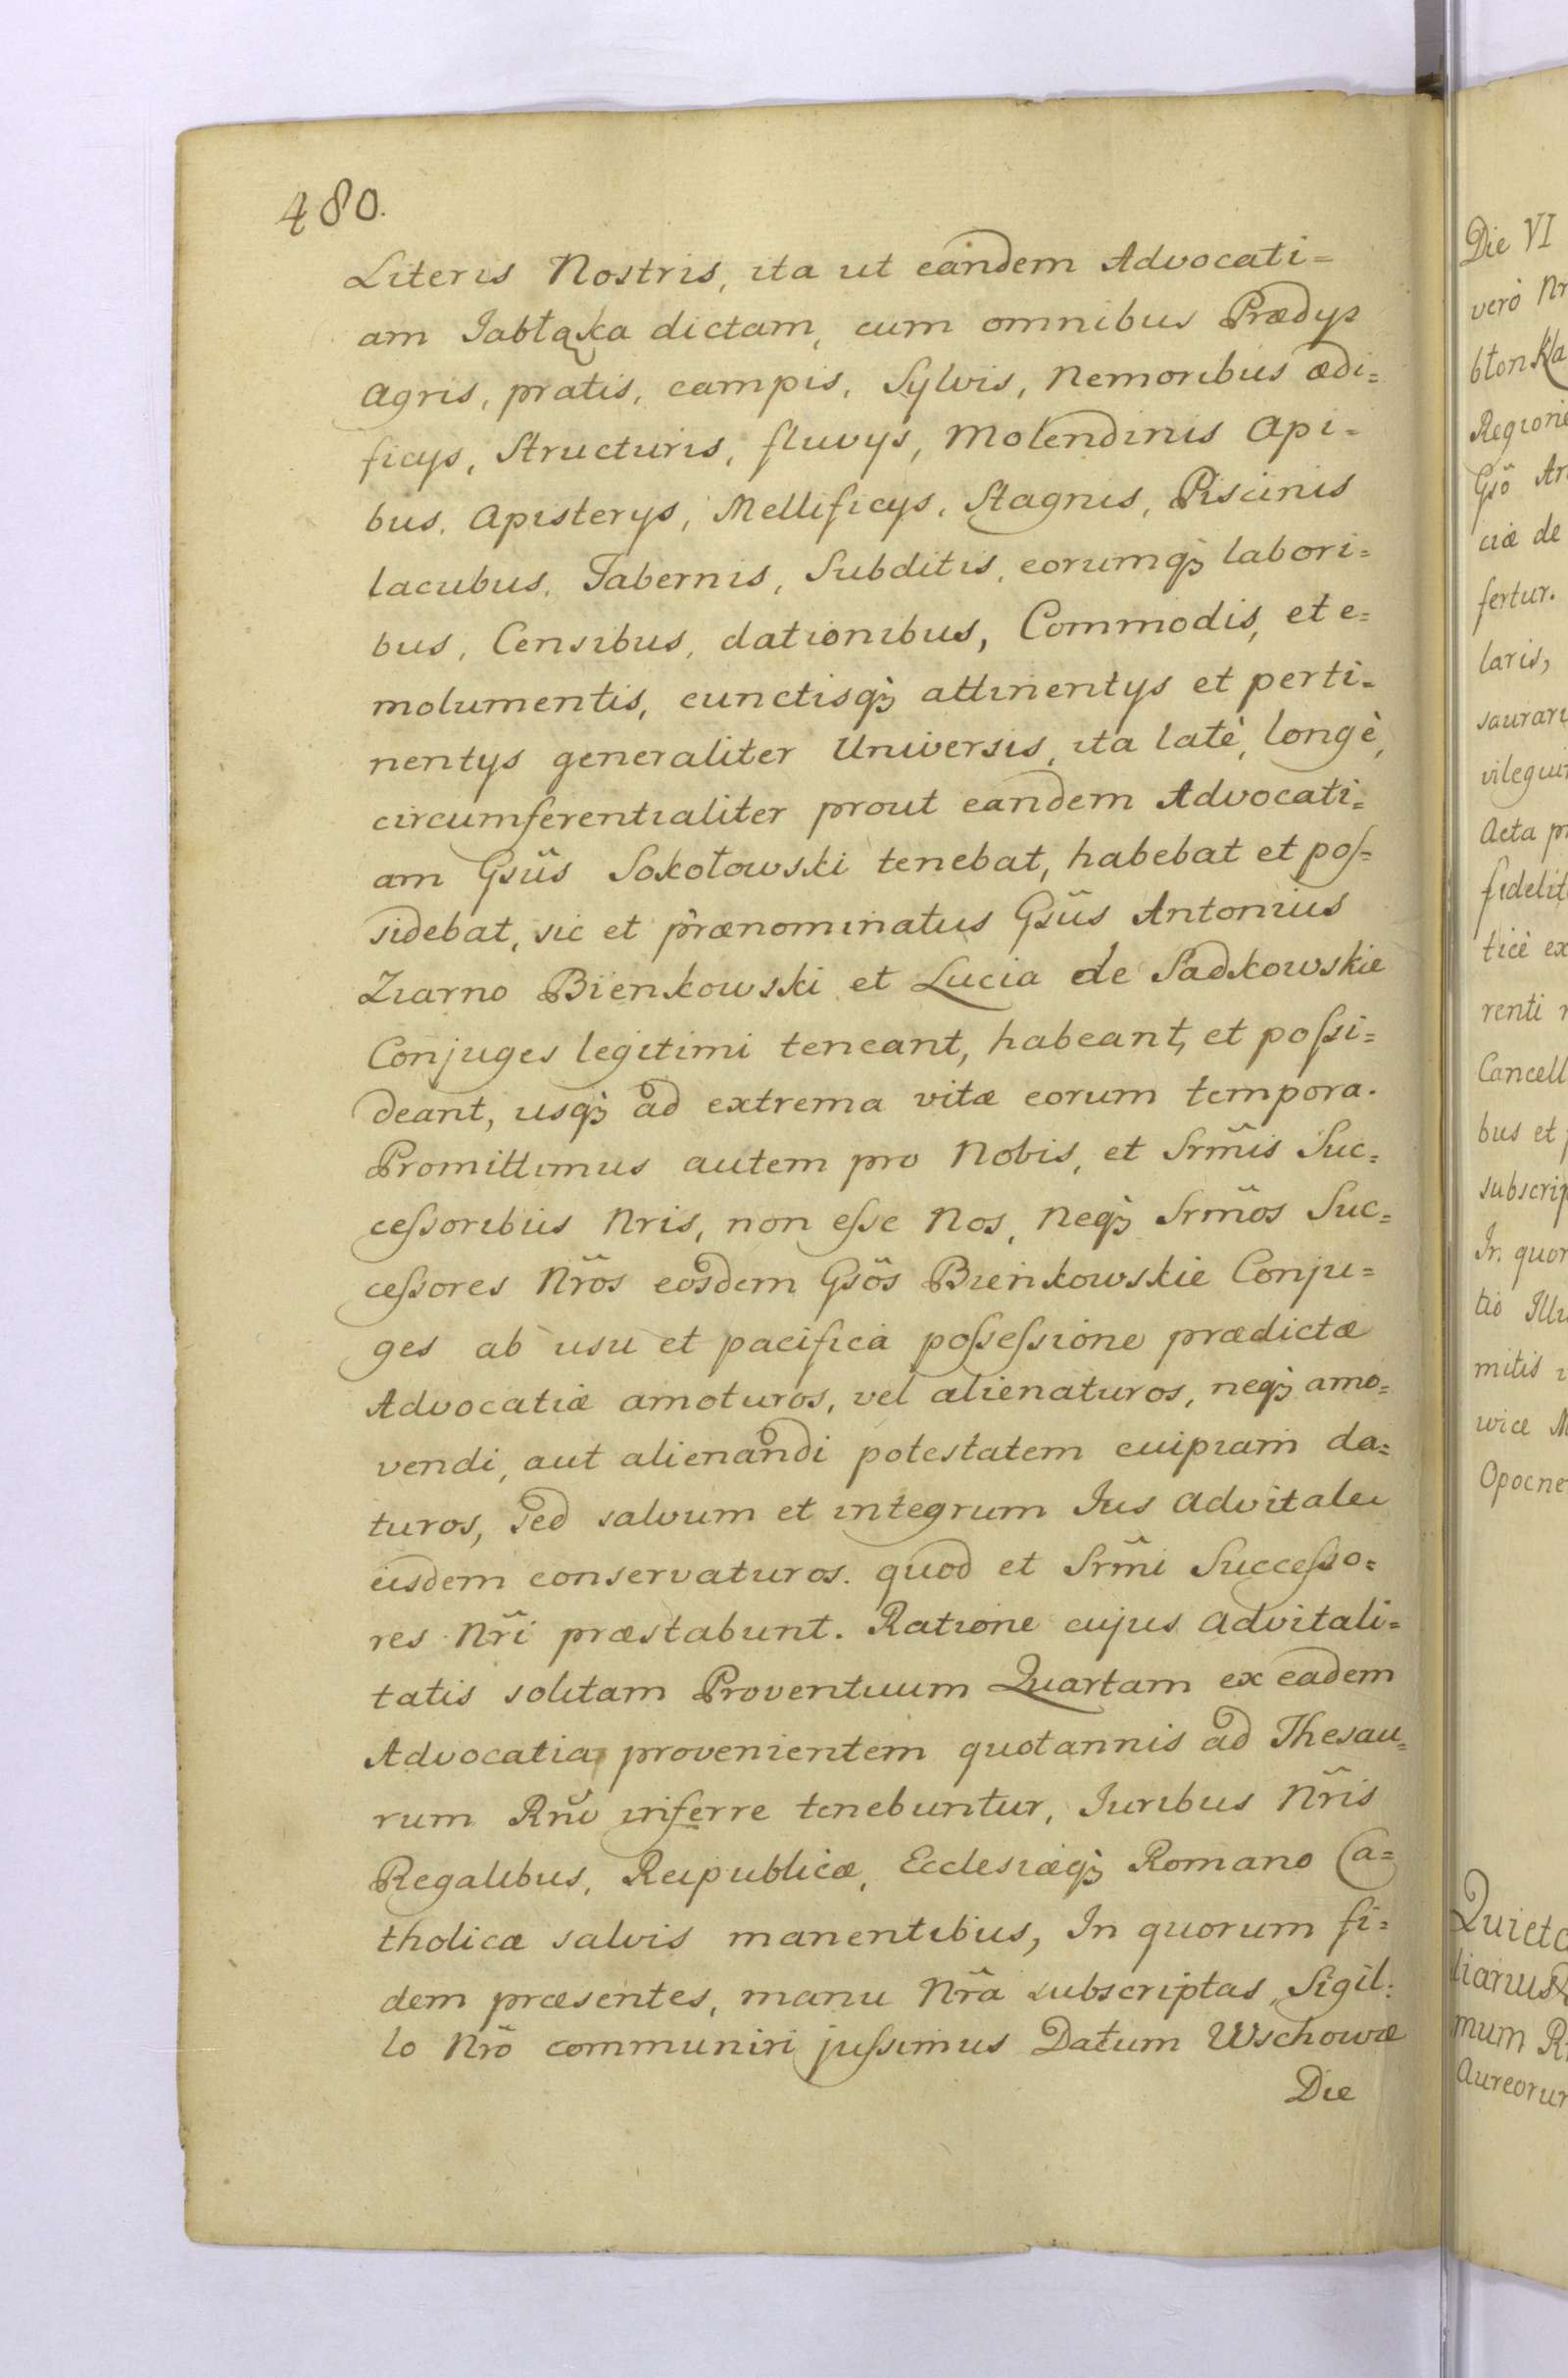 480.
Literis Nostris, ita ut eandem Advocati=
am Jabłąka dictam, cum omnibus Prædijs
agris, pratis, campis, Sylvis, Nemoribus ædi=
ficijs, Structuris, fluvijs, Molendinis Api=
bus, Apisterijs, Mellificijs, Stagnis, Piscinis
lacubus, Tabernis, Subditis, eorumqꝫ labori=
bus, Censibus, dationibus, Commodis, et e=
molumentis, cunctisqꝫ attinentijs et perti=
nentijs generaliter Universis, ita latè, longè,
circumferentialiter prout eandem Advocati=
am Gsũs Sokołowski tenebat, habebat et poſ=
sidebat, sic et prænominatus Gsũs Antonius
Ziarno Bieńkowski et Lucia de Sadkowskie
Conjuges legitimi teneant, habeant, et poſsi=
deant, usqꝫ ad extrema vitæ eorum tempora.
Promittimus autem pro Nobis, et Srm̃is Suc=
ceſsoribus Nris, non eſse Nos, neqꝫ Srm̃os Suc=
ceſsores Nr̃os eosdem Gsõs Bieńkowskie Conju=
ges ab usu et pacifica poſseſsione prædictæ
Advocatiæ amoturos, vel alienaturos, neqꝫ amo=
vendi, aut alienandi potestatem cuipiam da=
turos, sed salvum et integrum Jus advitale
eisdem conservaturos. quod et Srm̃i Succeſso=
res Nr̃i præstabunt. Ratione cujus advitali=
tatis solitam Proventuum Quartam ex eadem
Advocatia provenientem quotannis ad Thesau=
rum inferre tenebuntur, Juribus Nr̃is
Regalibus, Reipublicæ, Ecclesiæqꝫ Romano Ca=
tholicæ salvis manentibus, In quorum fi=
dem præsentes, manu Nr̃a subscriptas, Sigil=
lo Nrõ communiri juſsimus Datum Wschowæ
Die
Die VI
verò Nr
błonka
Regione
Gsõ An
ciæ de
fertur.
laris,
saurari
vilegium
Acta pr
fidelit
ticè ex
renti
Cancell
bus et p
subscrip
In quor
tio Illu
mitis
wice M
Opocne
Quieta
lianus
mum R
Aureorum